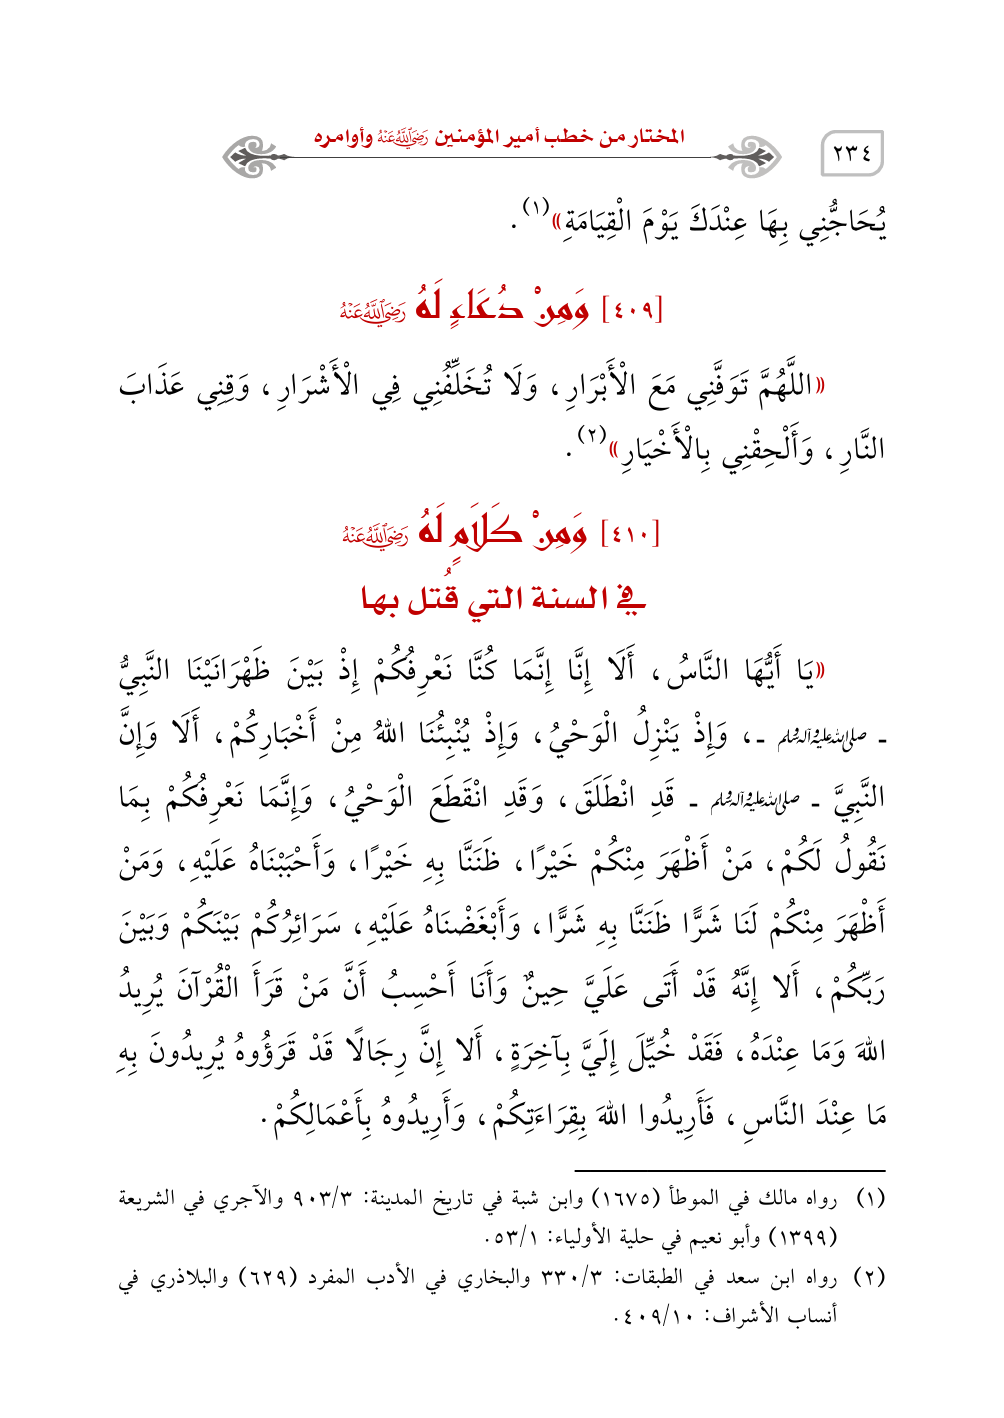 المختار من خطب أمير المؤمنين رَضِيَ اللَّهُ عَنْهُ وأوامره
٢٣٤
يُحَاجُّنِي بِهَا عِنْدَكَ يَوْمَ الْقِيَامَةِ»(١).
[٤٠٩] وَمِنْ دُعَاءٍ لَهُ رَضِيَ اللَّهُ عَنْهُ
«اللَّهُمَّ تَوَفَّنِي مَعَ الْأَبْرَارِ، وَلَا تُخَلِّفْنِي فِي الْأَشْرَارِ، وَقِنِي عَذَابَ
النَّارِ، وَأَلْحِقْنِي بِالْأَخْيَارِ»(٢).
[٤١٠] وَمِنْ كَلَامٍ لَهُ رَضِيَ اللَّهُ عَنْهُ
في السنة التي قُتل بها
«يَا أَيُّهَا النَّاسُ، أَلَا إِنَّا إِنَّمَا كُنَّا نَعْرِفُكُمْ إِذْ بَيْنَ ظَهْرَانَيْنَا النَّبِيُّ
ـ صلى الله عليه وآله وسلم ـ، وَإِذْ يَنْزِلُ الْوَحْيُ، وَإِذْ يُنْبِئُنَا اللهُ مِنْ أَخْبَارِكُمْ، أَلَا وَإِنَّ
النَّبِيَّ ـ صلى الله عليه وآله وسلم ـ قَدِ انْطَلَقَ، وَقَدِ انْقَطَعَ الْوَحْيُ، وَإِنَّمَا نَعْرِفُكُمْ بِمَا
نَقُولُ لَكُمْ، مَنْ أَظْهَرَ مِنْكُمْ خَيْرًا، ظَنَنَّا بِهِ خَيْرًا، وَأَحْبَبْنَاهُ عَلَيْهِ، وَمَنْ
أَظْهَرَ مِنْكُمْ لَنَا شَرًّا ظَنَنَّا بِهِ شَرًّا، وَأَبْغَضْنَاهُ عَلَيْهِ، سَرَائِرُكُمْ بَيْنَكُمْ وَبَيْنَ
رَبِّكُمْ، أَلا إِنَّهُ قَدْ أَتَى عَلَيَّ حِينٌ وَأَنَا أَحْسِبُ أَنَّ مَنْ قَرَأَ الْقُرْآنَ يُرِيدُ
اللهَ وَمَا عِنْدَهُ، فَقَدْ خُيِّلَ إِلَيَّ بِآخِرَةٍ، أَلا إِنَّ رِجَالًا قَدْ قَرَؤُوهُ يُرِيدُونَ بِهِ
مَا عِنْدَ النَّاسِ، فَأَرِيدُوا اللهَ بِقِرَاءَتِكُمْ، وَأَرِيدُوهُ بِأَعْمَالِكُمْ.
(١) رواه مالك في الموطأ (١٦٧٥) وابن شبة في تاريخ المدينة: ٩٠٣/٣ والآجري في الشريعة
(١٣٩٩) وأبو نعيم في حلية الأولياء: ٥٣/١.
(٢) رواه ابن سعد في الطبقات: ٣٣٠/٣ والبخاري في الأدب المفرد (٦٢٩) والبلاذري في
أنساب الأشراف: ٤٠٩/١٠.